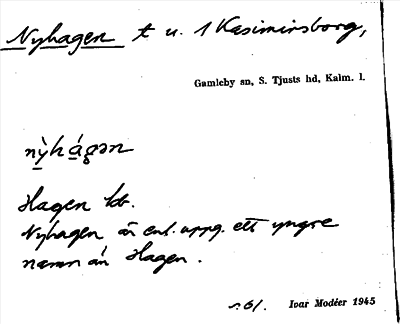 Nyhagen t u. 1 Kasimirsborg,
Gamleby sn, S. Tjusts hd, Kalm. l.
nỳhágən
Hagen kdr.
Nyhagen är enl. uppg. ett yngre
namn än Hagen.
s. 61. Ivar Modéer 1945